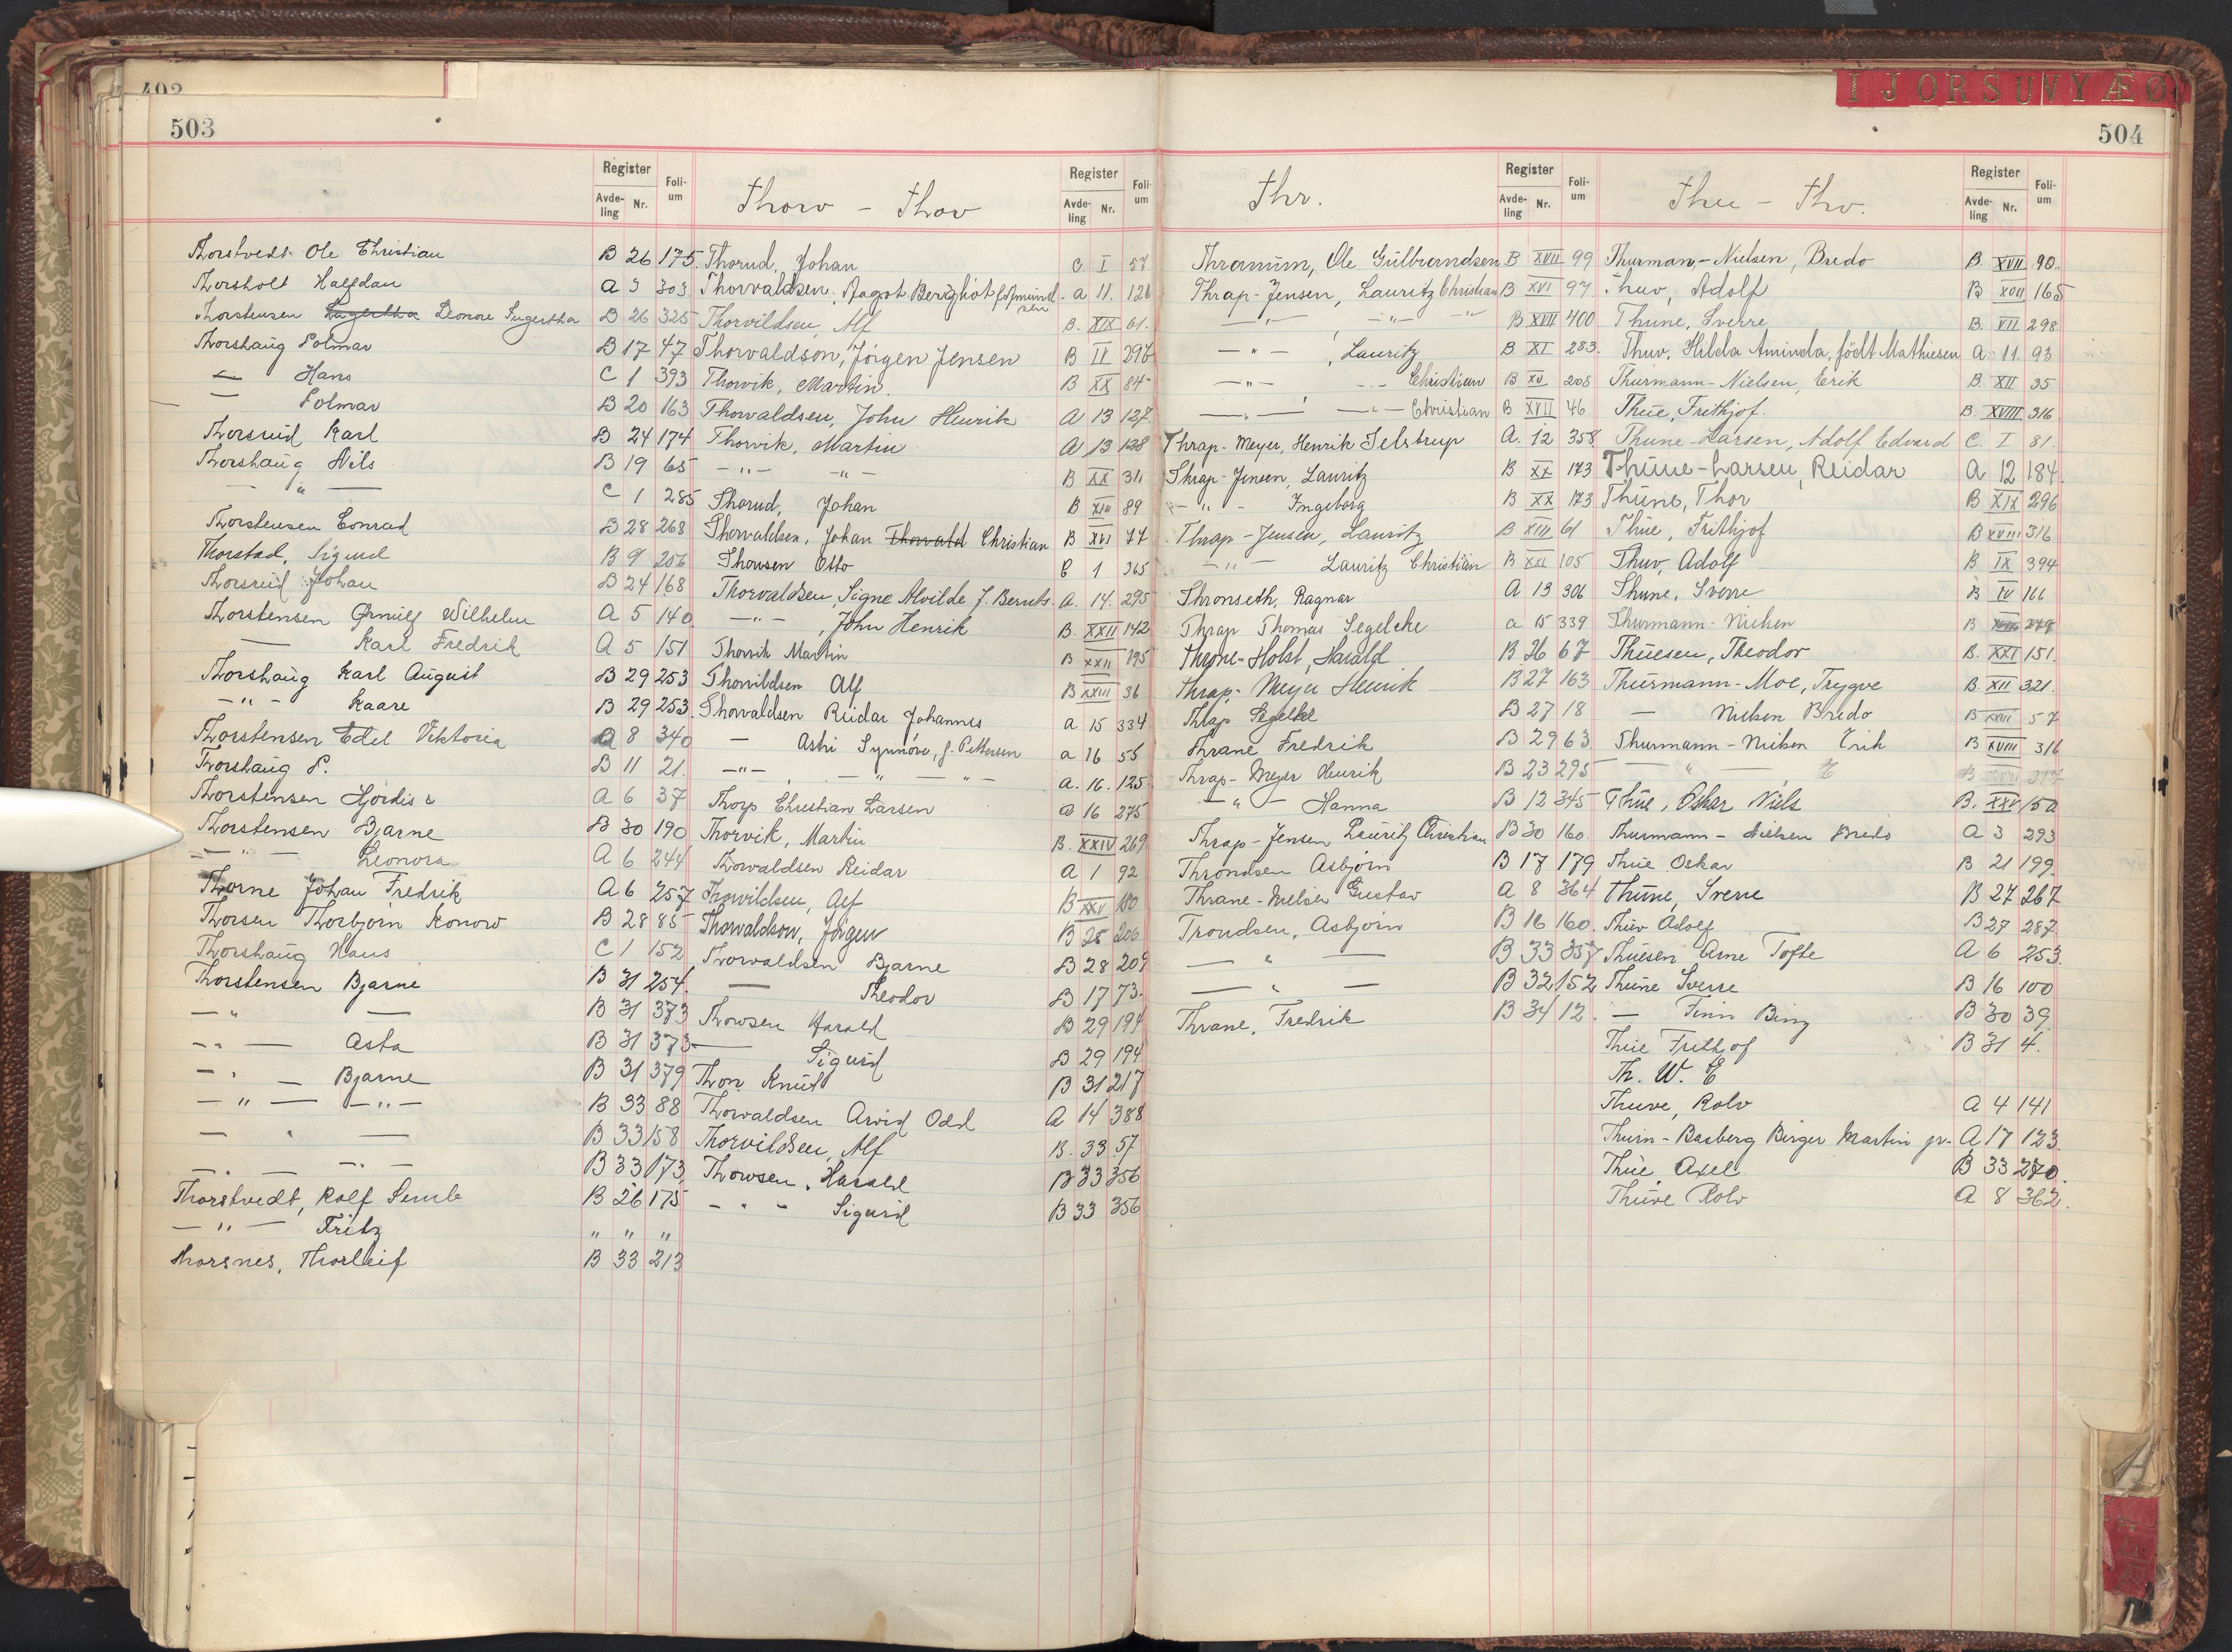 402
503
Register
Avde-ling Nr. Foli-um
Thorstvedt Ole Christian B 26 175.
Thorsholt Halfdan A 3 303
Thorstensen Leonore Ingertha B 26 325
Thorshaug Solmar B 17 47
— Hans C 1 393
— Solmar B 20 163
Thorsrud Karl B 24 174
Thorshaug Nils B 19 65
— " — C 1 285
Thorstensen Conrad B 28 268
Thorstad, Sigurd B 9 256
Thorsrud Johan B 24 168
Thorstensen Ørnulf Wilhelm A 5 140
— Karl Fredrik A 5 151
Thorshaug Karl August B 29 253
— " — Kaare B 29 253.
Thorstensen Edel Viktoria A 8 340
Thorshaug S. B 11 21.
Thorstensen Hjördis A 6 37
Thorstensen Bjarne B 30 190
— " — Leonora A 6 244
Thorne Johan Fredrik A 6 257
Thorsen Thorbjørn Konow B 28 85
Thorshaug Hans C 1 152
Thorstensen Bjarne B 31 254.
— " — B 31 373
— " — Asta B 31 373
— " — Bjarne B 31 379
— " — — " — B 33 88
— " — B 33 158
— " — — " — B 33 173
Thorstvedt, Rolf Semb B 26 175
— " — Fritz " " "
Thorsnes, Thorleif B 33 213
Thorv - Thov
Register
Avde-ling Nr. Foli-um
Thorud, Johan C. I 57
Thorvaldsen, Aagot Bergliot f. Asmundsen a 11. 126
Thorvildsen, Alf B. XIX 61.
Thorvaldson, Jørgen Jensen B II 296
Thorvik, Martin. B XX 84
Thorvaldsen, John Henrik A 13 127.
Thorvik, Martin A 13 128
— " — — " — B XX 311
Thorud, Johan B XIII 89
Thorvaldsen, Johan Thorvald Christian B XVI 77
Thowsen Otto C 1 365
Thorvaldsen, Signe Alvilde f. Bernts. A. 14. 295
— " — , John Henrik B. XXII 142
Thorvik Martin B XXII 195
Thorvildsen Alf B XXIII 36
Thorvaldsen Reidar Johannes a 15 334
— Astri Synnöve, f. Pettersen a 16 55
— " — — " — — " — a. 16. 125.
Thorp Christian Larsen a 16 275
Thorvik, Martin B. XXIV 269
Thorvaldsen Reidar A 1 92
Thorvildsen, Alf B XXV 100
Thorvaldson, Jørgen B 25 206
Thorvaldsen Bjarne B 28 209
— Theodor B 17 73.
Thowsen Harald B 29 194
— Sigurd B 29 194
Thon Knut B 31 217
Thorvaldsen Arvid Odd A 14 388
Thorvildsen, Alf B. 33. 57
Thowsen, Harald B 33 356
— " — Sigurd B 33 356
I J O R S U V Y Æ Ø
504
Thr.
Register
Avde-ling Nr. Foli-um
Thranum, Ole Gulbrandsen B XVII 99
Thrap-Jensen, Lauritz Christian B XVI 97
— " — , — " — " B XVII 400
— " — , Lauritz B XI 283.
— " — — " — Christian B XV 208
— " — , — " — Christian B XVII 46
Thrap-Meyer, Henrik Selstrup A. 12 358
Thrap-Jensen, Lauritz B XX 173
— " — Ingeborg B XX 173
Thrap-Jensen, Lauritz B XIII 61
— " — Lauritz Christian B XXI 105
Thronseth, Ragnar A 13 306
Thrap Thomas Segelcke a 15 339
Throne-Holst, Harald B 26 67
Thrap-Meyer Henrik B 27 163
Thrap Segelke B 27 18
Thrane Fredrik B 29 63
Thrap-Meyer Henrik B 23 295
— " — Hanna B 12 345
Thrap-Jensen Lauritz Christian B 30 160.
Throndsen Asbjørn B 17 179
Thrane-Nielsen Gustav A 8 364
Trondsen, Asbjørn B 16 160.
— " — B 33 357
— " — B 32 152
Thrane, Fredrik B 34 12.
Thu - Thv.
Register
Avde-ling Nr. Foli-um
Thurmann-Nielsen, Bredo B. XVII 90.
Thuv, Adolf B XVII 165
Thune, Sverre B. VII 298
Thuv, Hilda Aminda, født Mathiesen A. 11. 93
Thurmann-Nielsen, Erik B. XII 35
Thue, Frithjof. B. XVIII 316.
Thune-Larsen, Adolf Edvard C. I 81.
Thune-Larsen, Reidar A 12 184.
Thune, Thor B XIX 296
Thue, Frithjof B XVIII 316
Thuv, Adolf B IX 394
Thune, Sverre B IV 166
Thurmann-Nielsen B
Thuesen, Theodor B. XXI 151.
Thurmann-Moe, Trygve B. XII 321.
— Nielsen Bredo B XXIII 57
Thurmann-Nielsen Erik B XVIII 316
Thue, Oskar Niels B. XXV 150
Thurmann-Nielsen Bredo A 3 293
Thue Oskar B 21 199
Thune, Sverre B 27 267
Thuv Adolf B 27 287
Thuesen Arne Tofte A 6 253.
Thune Sverre B 16 100
— Finn Bing B 30 39
Thue Frithjof B 31 4.
Th. W. E
Thuve, Rolv A 4 141
Thurn-Basberg Birger Martin jr. A 17 123
Thue, Axel B 33 270.
Thuve Rolv A 8 362.